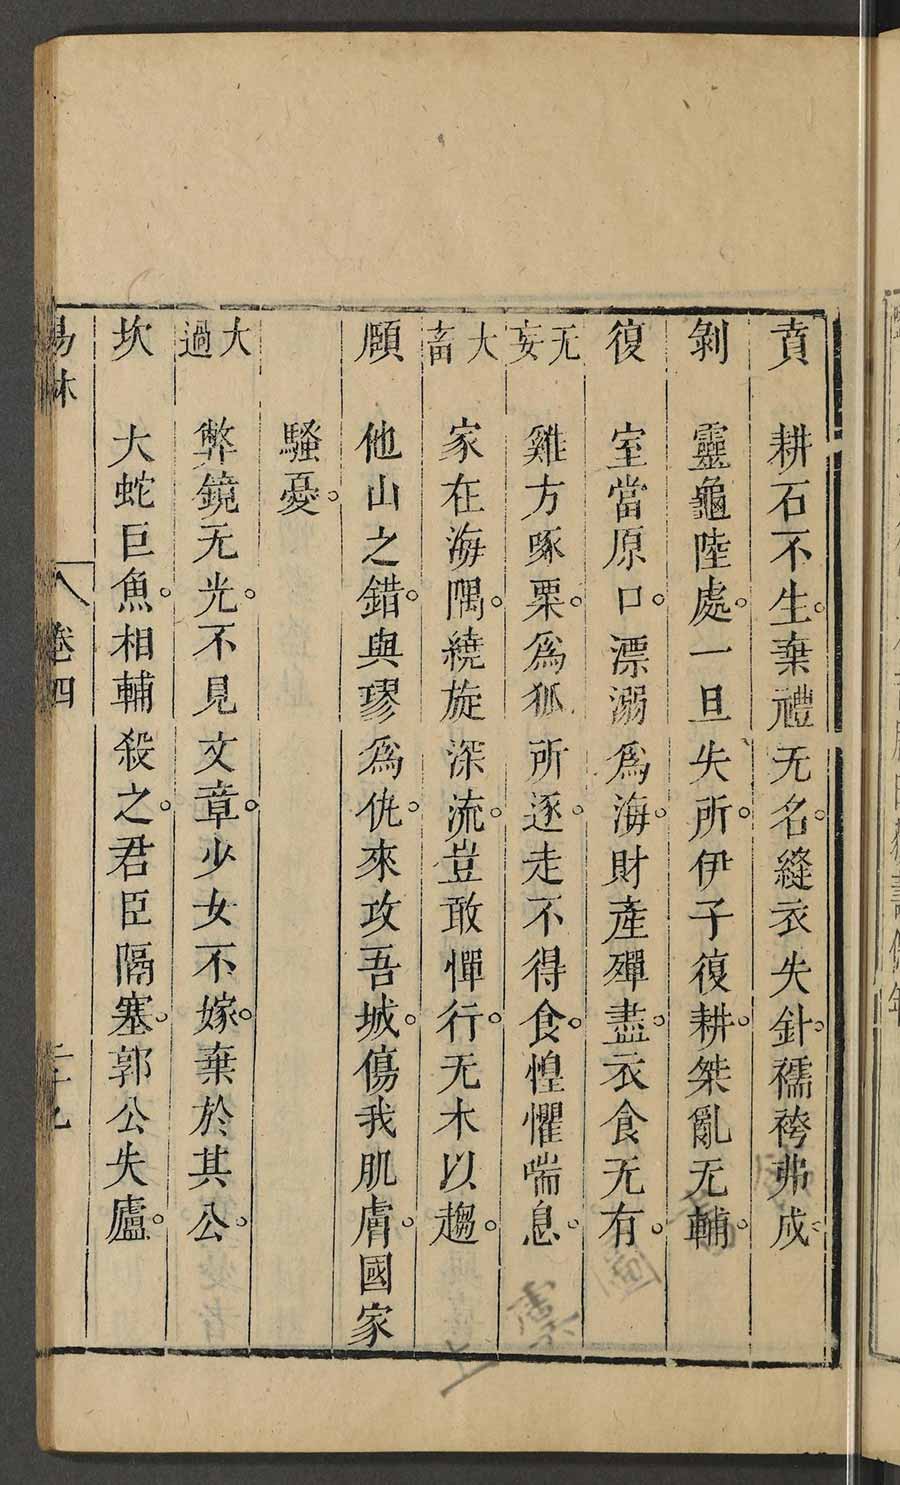 賁　耕石不生。棄禮无名。縫衣失針。襦袴弗成。
剝　靈龜陸處。一旦失所。伊子復耕。桀亂无輔。
復　室當原口。漂溺爲海。財產殫盡。衣食无有。
无妄　雞方啄粟。爲狐所逐。走不得食。惶懼喘息。
大畜　家在海隅。繞旋深流。豈敢憚行。无木以趨。
頤　他山之錯。與璆爲仇。來攻吾城。傷我肌膚。國家
騷憂。
大過　弊鏡无光。不見文章。少女不嫁。棄於其公。
坎　大蛇巨魚。相輔殺之。君臣隔塞。郭公失廬。
易林　卷四　二十九